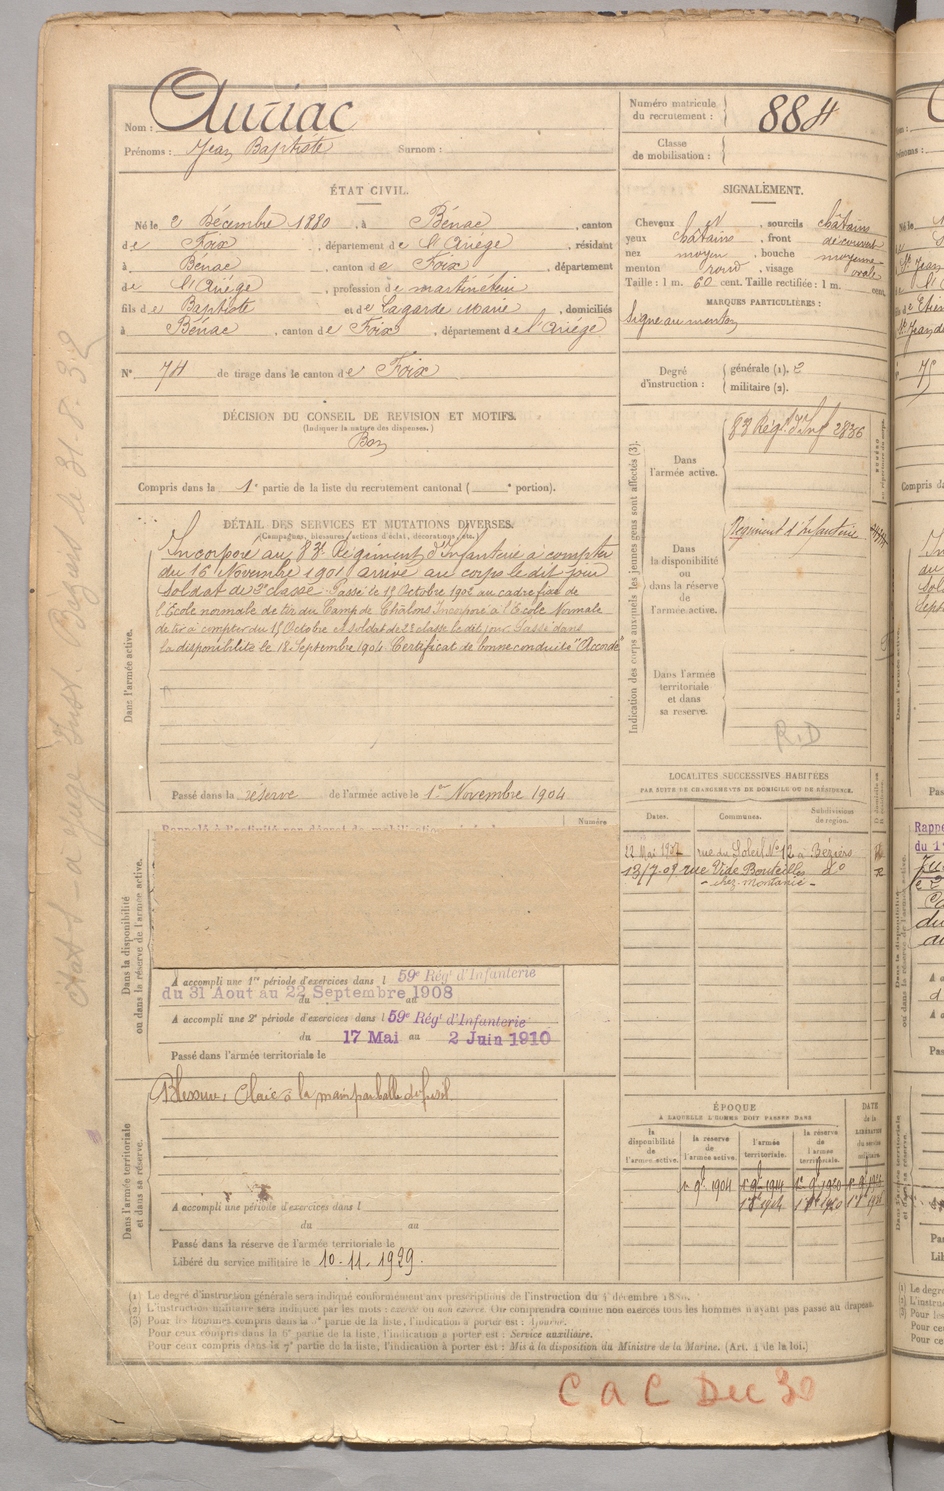 Nom : Auriac
Prénoms : Jean Baptiste Surnom :
Numéro matricule du recrutement : 884
Classe de mobilisation :
ÉTAT CIVIL.
Né le 2 Décembre 1880, à Bénac, canton
de Foix, département de l'Ariége, résidant
à Bénac, canton de Foix, département
de l'Ariége, profession de martinéteur
fils de Baptiste et de Lagarde Marie, domiciliés
à Bénac, canton de Foix, département de l'Ariége
N° 74 de tirage dans le canton de Foix
SIGNALEMENT.
Cheveux, sourcils châtains
yeux châtains, front découvert
nez moyen, bouche moyenne
menton rond, visage ovale
Taille : 1 m. 60 cent. Taille rectifiée : 1 m. cent.
MARQUES PARTICULIÈRES :
Signe au menton
Degré d'instruction : générale (1). 2
militaire (2).
DÉCISION DU CONSEIL DE REVISION ET MOTIFS.
(Indiquer la nature des dispenses.)
Bon
Compris dans la 1e partie de la liste du recrutement cantonal ( e portion).
DÉTAIL DES SERVICES ET MUTATIONS DIVERSES.
(Campagnes, blessures, actions d'éclat, décorations, etc.)
Dans l'armée active.
Incorporé au 83e Régiment d'Infanterie à compter
du 16 Novembre 1901 arrivé au corps le dit jour
Soldat de 2e classe Passé le 15 Octobre 1902 au cadre fixe de
l'Ecole normale de tir du Camp de Châlons Incorporé à l'Ecole Normale
de tir à compter du 15 Octobre et soldat de 2e classe le dit jour. Passé dans
la disponibilité le 18 Septembre 1904 Certificat de bonne conduite "Accordé"
Passé dans la réserve de l'armée active le 1er Novembre 1904
Indication des corps auxquels les jeunes gens sont affectés (3).
Dans l'armée active.
83 Régt d'Inf 2836
Dans la disponibilité ou dans la réserve de l'armée active.
Régiment d'Infanterie
Dans l'armée territoriale et dans sa réserve.
R.D
LOCALITÉS SUCCESSIVES HABITÉES
PAR SUITE DE CHANGEMENTS DE DOMICILE OU DE RÉSIDENCE.
Dates. Communes. Subdivisions de région.
22 Mai rue du Soleil N° 12 à Béziers
13/7.09 rue Vide Bouteilles do
- chez Montanié -
Numéro
Dans la disponibilité ou dans la réserve de l'armée active.
A accompli une 1re période d'exercices dans l 59e Régt d'Infanterie
du 31 Aout au 22 Septembre 1908
A accompli une 2e période d'exercices dans l 59e Régt d'Infanterie
du 17 Mai au 2 Juin 1910
Passé dans l'armée territoriale le
Dans l'armée territoriale et dans sa réserve.
Blessure, Plaie à la main par balle de fusil
A accompli une période d'exercices dans l
du au
Passé dans la réserve de l'armée territoriale le
Libéré du service militaire le 10.11.1929.
ÉPOQUE
A LAQUELLE L'HOMME DOIT PASSER DANS
la disponibilité de l'armée active.
la réserve de l'armée active.
l'armée territoriale.
la réserve de l'armée territoriale.
DATE de la LIBÉRATION du service militaire.
1r 9b 1904
(1) Le degré d'instruction générale sera indiqué conformément aux prescriptions de l'instruction du 4 décembre 1889.
(2) L'instruction militaire sera indiquée par les mots : exercé ou non exercé. On comprendra comme non exercés tous les hommes n'ayant pas passé au drapeau.
(3) Pour les hommes compris dans la 4e partie de la liste, l'indication à porter est : Ajourné.
Pour ceux compris dans la 6e partie de la liste, l'indication à porter est : Service auxiliaire.
Pour ceux compris dans la 7e partie de la liste, l'indication à porter est : Mis à la disposition du Ministre de la Marine. (Art. 4 de la loi.)
C a C Dec 30